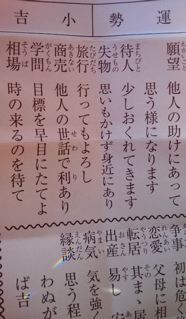 運勢小吉
願望 他人の助けにあって思う様になります
待人 少しおくれてきます
失物 思いもかけず身近にあり
旅行 行ってもよろし
商売 他人の世話で利あり
学問 目標を早目にたてよ
相場 時の来るのを待て
争事 初は危
恋愛 父母に相
転居 其まゝ居
出産 易し安
病気 気を強
縁談 思う程
わぬが
ば吉